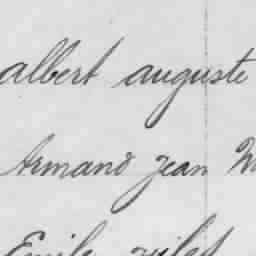 albert auguste
Armand Jean
Emile